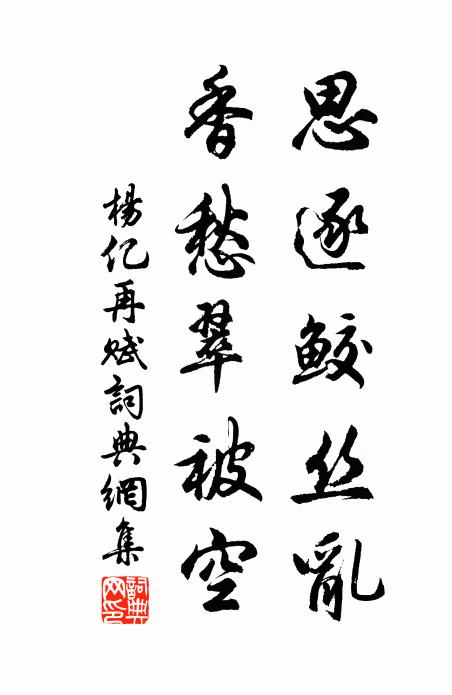 思逐鲛丝亂
香愁翠被空
楊亿再赋詞典網集
詞典网印